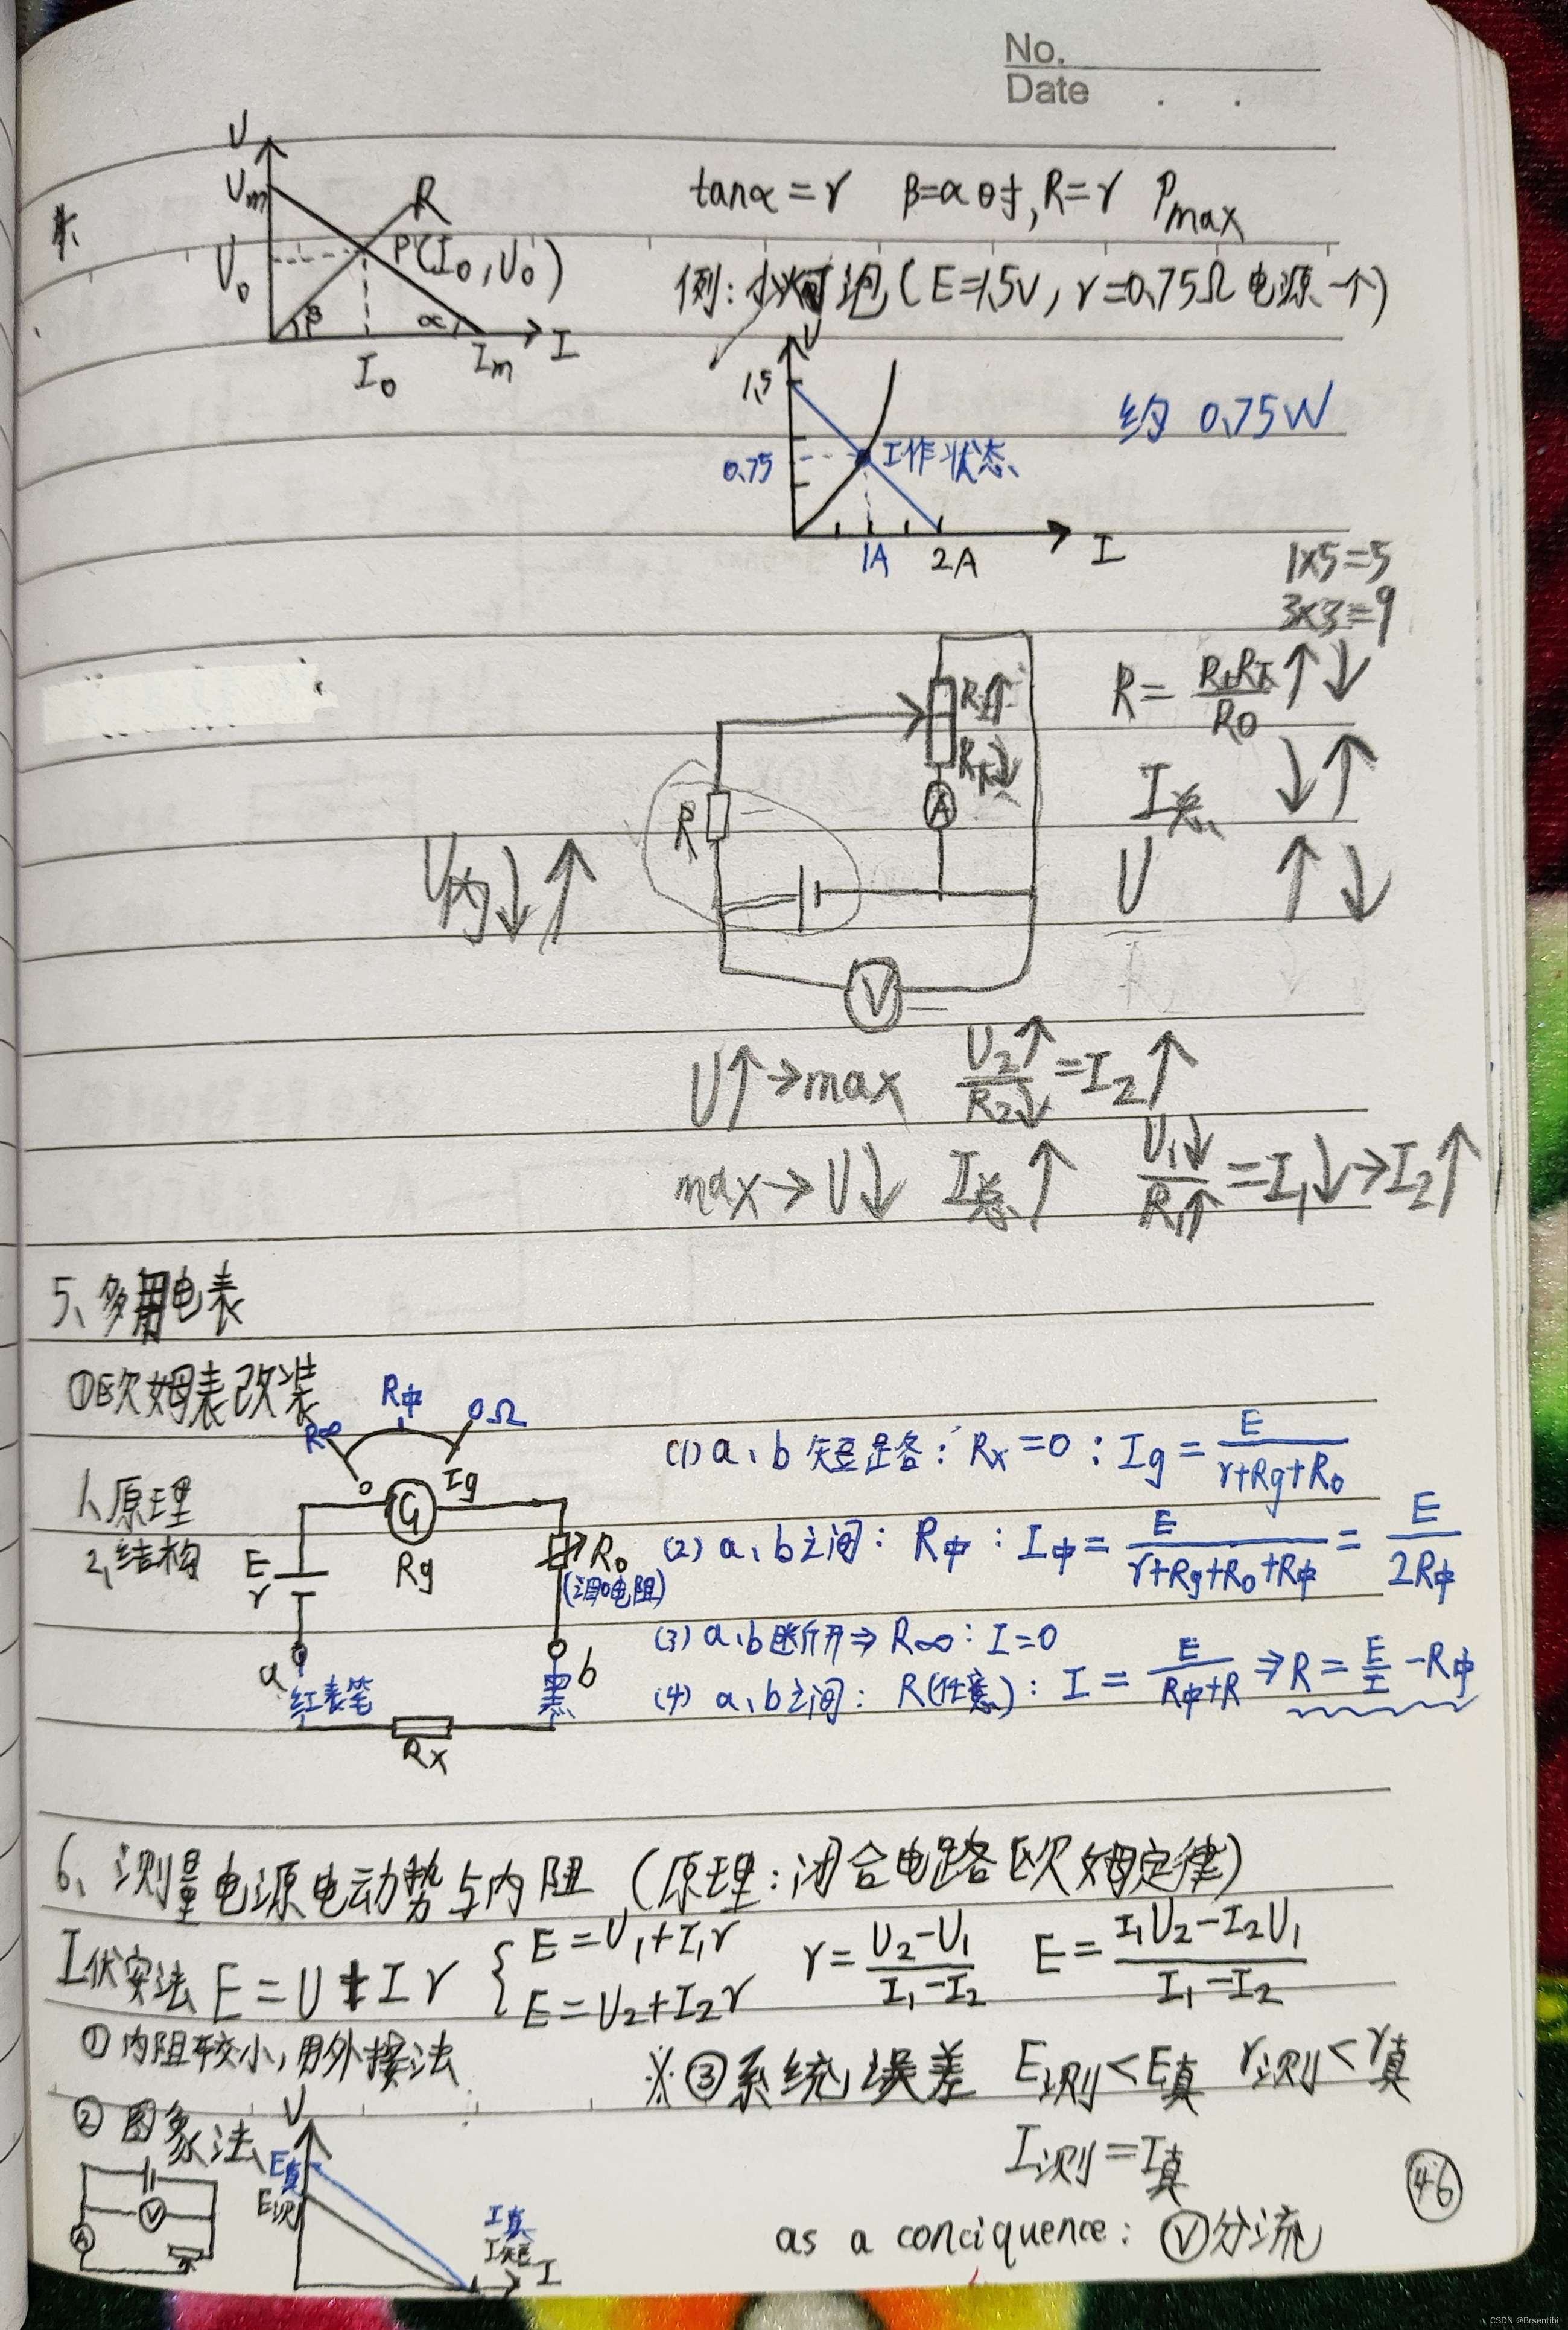 No.
Date
U
Um
R
P(I₀,U₀)
U₀
β
α
I₀
Im
I
tanα=r β=α时,R=r Pmax
例:小灯泡(E=1.5V,r=0.75Ω电源一个)
U
1.5
0.75
工作状态
1A
2A
I
约 0.75W
1×5=5
3×3=9
R上↑
R下↓
A
R
V
R=R上R下/R₀ ↑↓
I总 ↓↑
U ↑↓
U内↓↑
U↑→max U₂↑/R₂↓=I₂↑
max→U↓ I总↑ U₁↓/R₁↑=I₁↓→I₂↑
5、多用电表
①欧姆表改装
1、原理
2、结构
R∞
R中
0Ω
0
Ig
G
Rg
E
r
R₀
(调0电阻)
a
b
红表笔
黑
Rx
(1)a、b短路:Rx=0:Ig=E/(r+Rg+R₀)
(2)a、b之间:R中:I中=E/(r+Rg+R₀+R中)=E/2R中
(3)a、b断开⇒R∞:I=0
(4)a、b之间:R(任意):I=E/(R中+R)⇒R=E/I-R中
6、测量电源电动势与内阻(原理:闭合电路欧姆定律)
I伏安法 E=U+Ir {E=U₁+I₁r E=U₂+I₂r r=(U₂-U₁)/(I₁-I₂) E=(I₁U₂-I₂U₁)/(I₁-I₂)
①内阻较小,用外接法
※③系统误差 E测<E真 r测<r真
②图象法
I测=I真
U
E真
E测
I真
I短
I
V
A
as a conciquence: Ⓥ分流
46
CSDN @Brsentibi